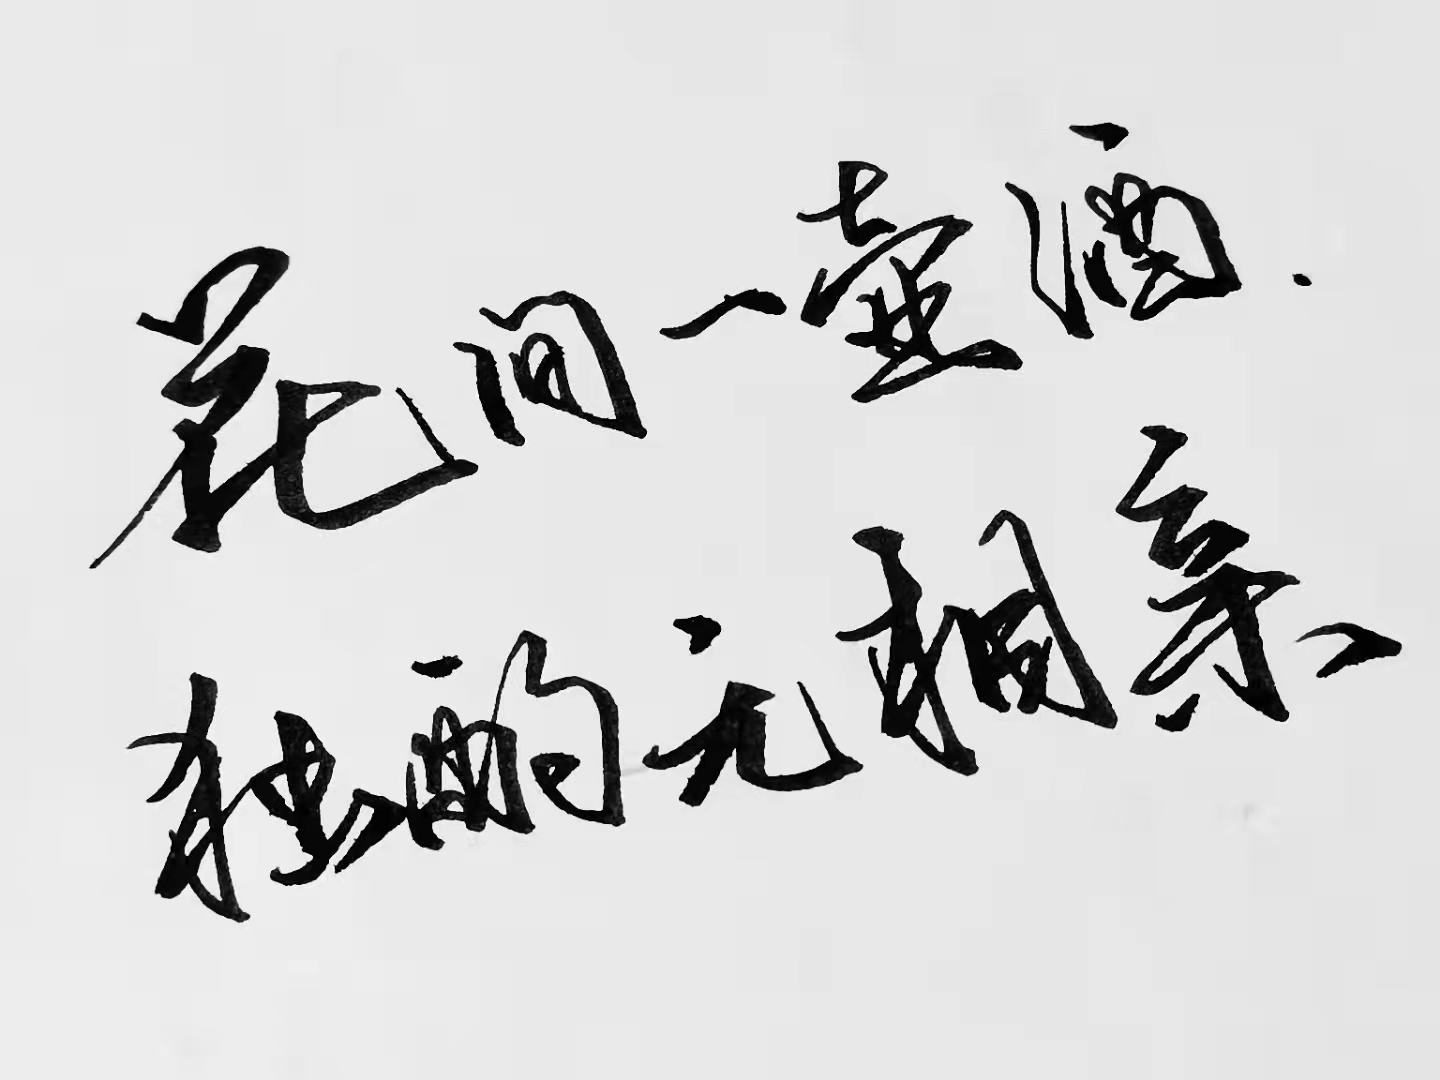 花间一壶酒.
独酌无相亲、